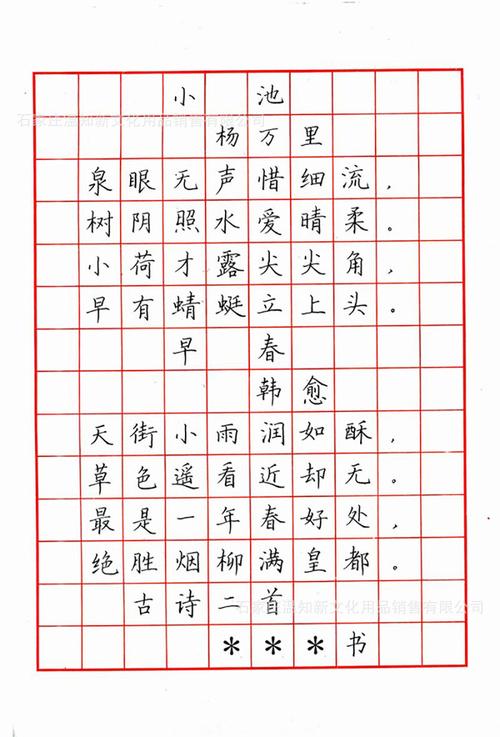 小池
石家庄温知新文化用品销售有限公司
杨万里
泉眼无声惜细流，
树阴照水爱晴柔。
小荷才露尖尖角，
早有蜻蜓立上头。
早春
韩愈
天街小雨润如酥，
草色遥看近却无。
最是一年春好处，
绝胜烟柳满皇都。
古诗二首
石家庄温知新文化用品销售有限公司
***书